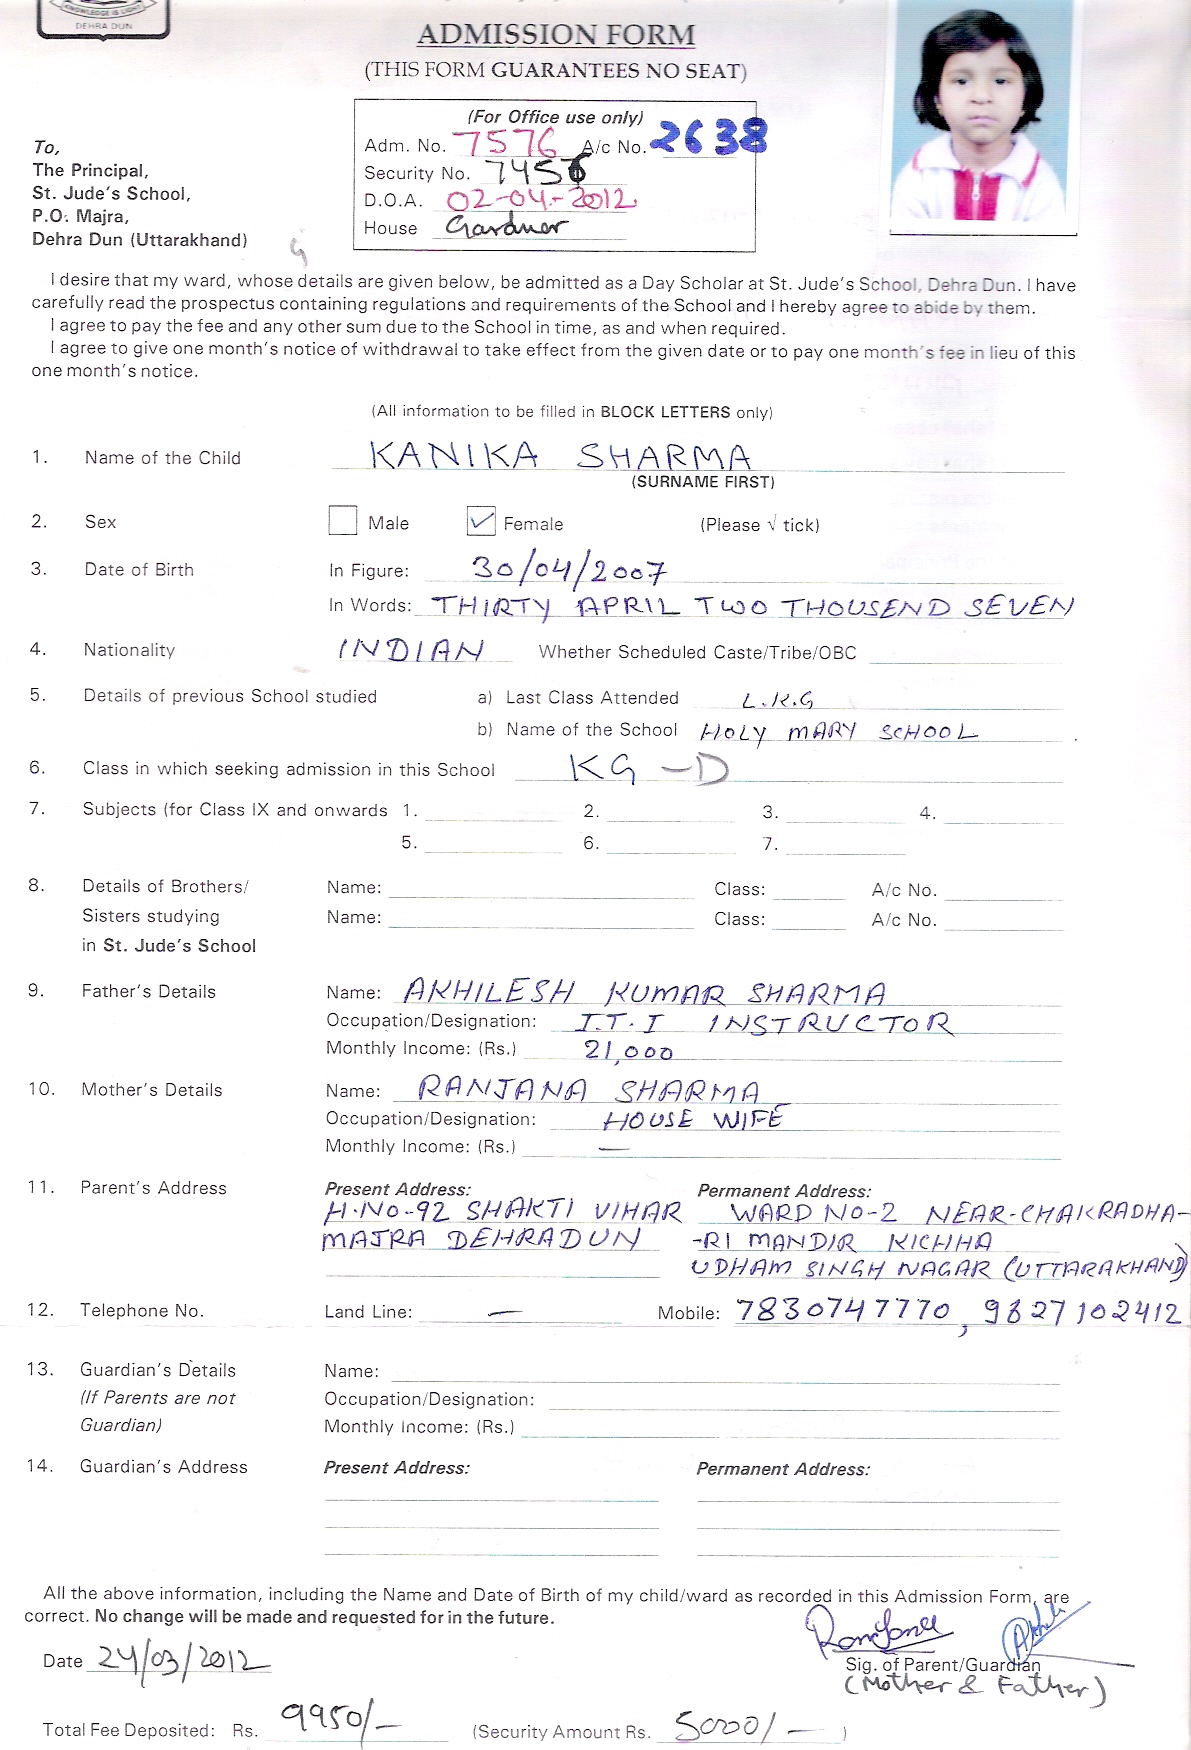 KNOWLEDGE IS LIGHT
DEHRA DUN
ADMISSION FORM
(THIS FORM GUARANTEES NO SEAT)
(For Office use only)
Adm. No. 7576 A/c No. 2638
Security No. 745
D.O.A. 02-04-2012
House Gardner
To,
The Principal,
St. Jude's School,
P.O. Majra,
Dehra Dun (Uttarakhand)
G
I desire that my ward, whose details are given below, be admitted as a Day Scholar at St. Jude's School, Dehra Dun. I have
carefully read the prospectus containing regulations and requirements of the School and I hereby agree to abide by them.
I agree to pay the fee and any other sum due to the School in time, as and when required.
I agree to give one month's notice of withdrawal to take effect from the given date or to pay one month's fee in lieu of this
one month's notice.
(All information to be filled in BLOCK LETTERS only)
1. Name of the Child KANIKA SHARMA
(SURNAME FIRST)
2. Sex Male ✓ Female (Please √ tick)
3. Date of Birth In Figure: 30/04/2007
In Words: THIRTY APRIL TWO THOUSEND SEVEN
4. Nationality INDIAN Whether Scheduled Caste/Tribe/OBC
5. Details of previous School studied a) Last Class Attended L.K.G
b) Name of the School HOLY MARY SCHOOL
6. Class in which seeking admission in this School KG -D
7. Subjects (for Class IX and onwards 1. 2. 3. 4.
5. 6. 7.
8. Details of Brothers/ Name: Class: A/c No.
Sisters studying Name: Class: A/c No.
in St. Jude's School
9. Father's Details Name: AKHILESH KUMAR SHARMA
Occupation/Designation: I.T.I INSTRUCTOR
Monthly Income: (Rs.) 21,000
10. Mother's Details Name: RANJANA SHARMA
Occupation/Designation: HOUSE WIFE
Monthly Income: (Rs.) —
11. Parent's Address Present Address: Permanent Address:
H.NO-92 SHAKTI VIHAR WARD NO-2 NEAR-CHAKRADHA-
MAJRA DEHRADUN -RI MANDIR KICHHA
UDHAM SINGH NAGAR (UTTARAKHAND)
12. Telephone No. Land Line: — Mobile: 7830747770, 9827102412
13. Guardian's Details Name:
(If Parents are not Occupation/Designation:
Guardian) Monthly Income: (Rs.)
14. Guardian's Address Present Address: Permanent Address:
All the above information, including the Name and Date of Birth of my child/ward as recorded in this Admission Form, are
correct. No change will be made and requested for in the future.
Date 24/03/2012
Sig. of Parent/Guardian
(Mother & Father)
Total Fee Deposited: Rs. 9950/- (Security Amount Rs. 5000/- )